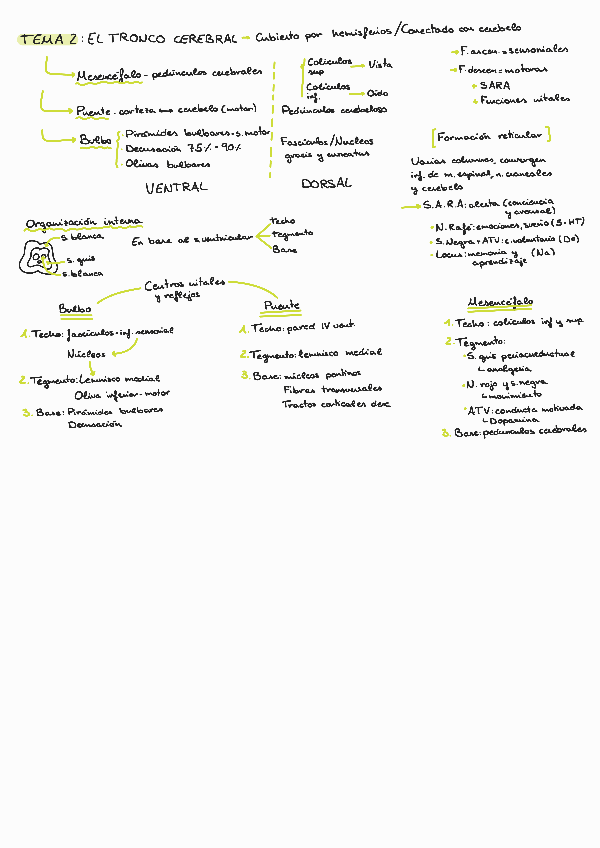 TEMA 2: EL TRONCO CEREBRAL → Cubierto por hemisferios/Conectado con cerebelo
Mesencéfalo - pedúnculos cerebrales
Puente - corteza ↔ cerebelo (motor)
Bulbo
· Pirámides bulbares - s. motor
· Decusación 75% - 90%
· Olivas bulbares
VENTRAL
Colículos sup → Vista
Colículos inf. → Oído
Pedúnculo cerebeloso
Fascículos/Nucleos
gracis y cuneatus
DORSAL
→ F. ascen. = sensoriales
→ F. descen = motoras
→ SARA
→ Funciones vitales
[Formación reticular]
Varias columnas, convergen
inf. de m. espinal, n. craneales
y cerebelo
→ S.A.R.A: alerta (conciencia
y arousal)
· N. Rafé: emociones, sueño (5-HT)
· S. Negra + ATV: c. voluntario (Da)
· Locus: memoria y (Na)
aprendizaje
Organización interna
s. blanca
s. gris
s. blanca
En base al s. ventricular
Techo
Tegmento
Base
Centros vitales
y reflejos
Bulbo
1. Techo: fascículos - inf. sensorial
Núcleos
2. Tegmento: Lemnisco medial
Oliva inferior - motor
3. Base: Pirámides bulbares
Decusación
Puente
1. Techo: pared IV vent.
2. Tegmento: lemnisco medial
3. Base: núcleos pontinos
Fibras transversales
Tractos corticales desc
Mesencéfalo
1. Techo: colículos inf y sup
2. Tegmento:
· S. gris periacueductual
↳ analgesia
· N. rojo y s. negra
↳ movimiento
· ATV: conducta motivada
↳ Dopamina
3. Base: pedúnculos cerebrales